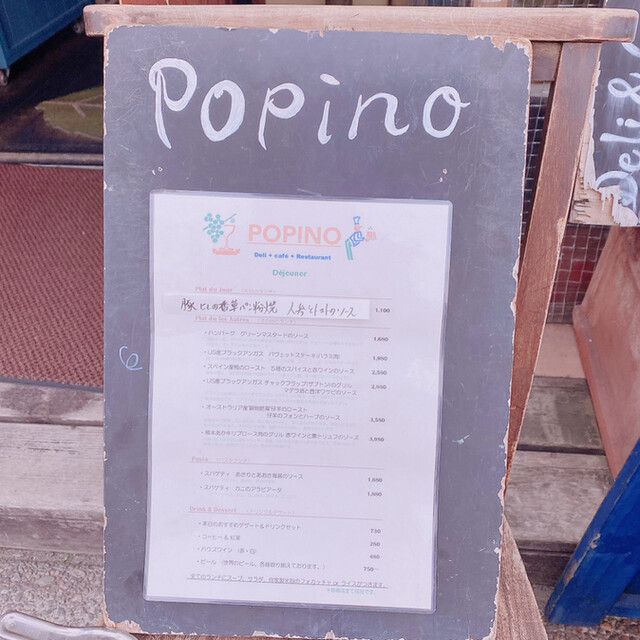 Popino
Deli &
POPINO
Deli + café + Restaurant
Déjeuner
Plat du jour
豚ヒレの香草パン粉焼 人参とトマトのソース 1,100
・ハンバーグ グリーンマスタードのソース 1,680
・US産ブラックアンガス バヴェットステーキ(ハラミ肉) 1,980
・スペイン産鴨のロースト 5種のスパイスと赤ワインのソース 2,580
・US産ブラックアンガス チャックフラップ(ザブトン)のグリル
マデラ酒と西洋ワサビのソース 2,680
・オーストラリア産 穀物肥育仔羊のロースト
仔羊のフォンとハーブのソース 3,580
赤ワインと黒トリュフのソース 3,980
Pasta
・スパゲティ あさりとあおさ海苔のソース 1,680
・スパゲティ カニのアラビアータ 1,680
Drink & Dessert
・本日のおすすめデザート&ドリンクセット 730
・コーヒー & 紅茶 290
・ハウスワイン (赤・白) 680
・ビール (世界のビール、各種取り揃えております。) 750〜
全てのランチにスープ、サラダ、自家製米粉のフォカッチャ or ライスがつきます。